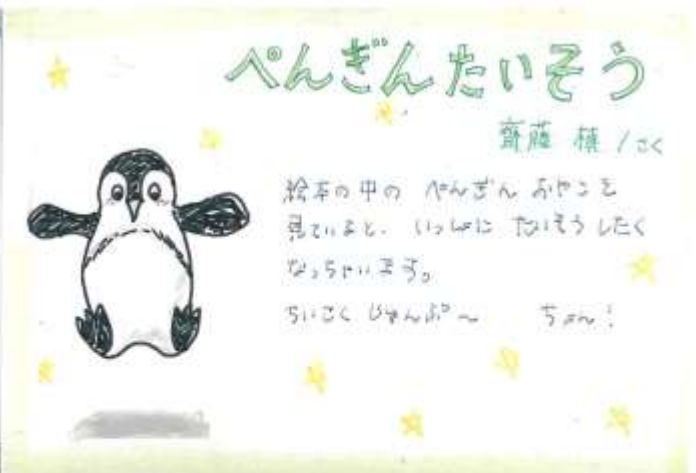 ぺんぎんたいそう
齋藤 槙/さく
絵本の中の ぺんぎん おやこを
見ていると、いっしょに たいそう したく
なっちゃいます。
ちいさく じゃんぷ〜 ちょん!